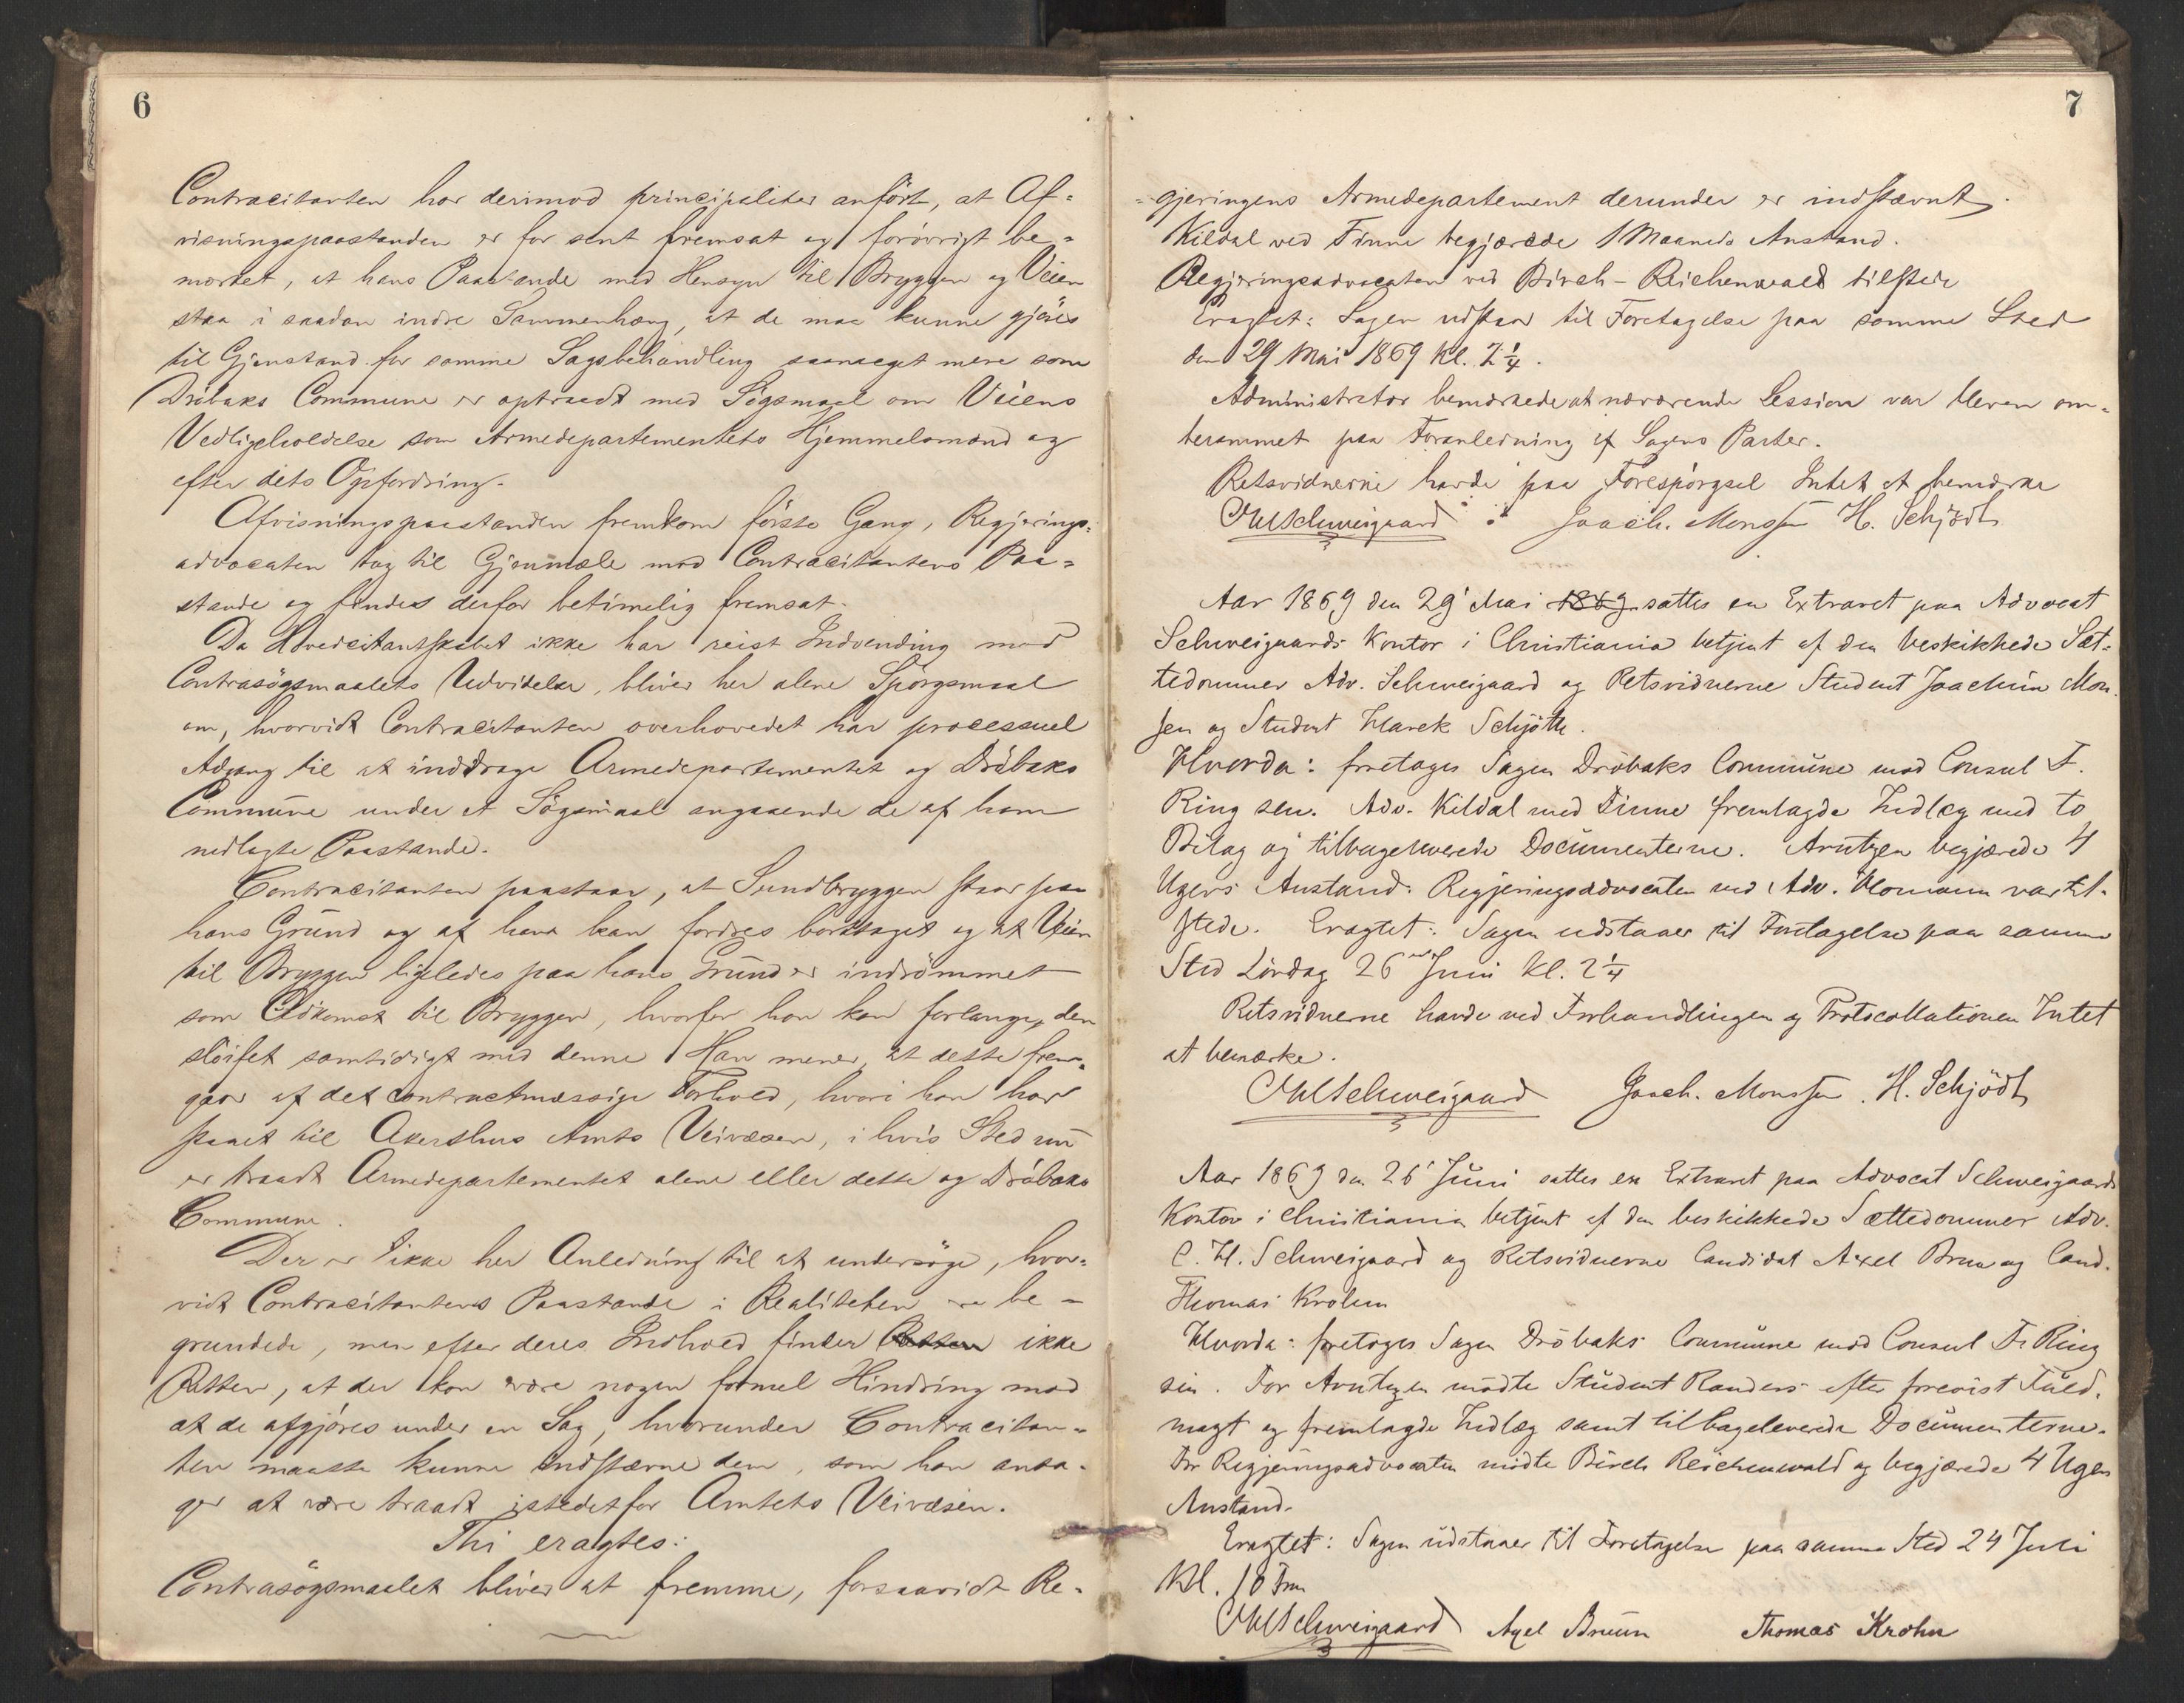 6
Contracitanten har derimod principaliter anført, at Af-
visningspaastanden er for sent fremsat og forøvrigt be-
mærket, at hans Paastande med Hensyn til Bryggen og Veien
staa i saadan indre Sammenhæng, at de maa kunne gjøres
til Gjenstand for samme Sagsbehandling saameget mere som
Drøbaks Commune er optraadt med Søgsmaal om Veiens
Vedligeholdelse som Armedepartementets Hjemmelsmand og
efter dets Opfordring.
Afvisningspaastanden fremkom første Gang, Regjerings-
advocaten tog til Gjenmæle mod Contracitantens Paa-
stande og findes derfor betimelig fremsat.
Da Hovedcitantskabet ikke har reist Indvending mod
Contrasøgsmaalets Udvidelse, bliver her alene Spørgsmaal
om, hvorvidt Contracitanten overhovedet har processuel
Adgang til at inddrage Armedepartementet og Drøbaks
Commune under et Søgsmaal angaaende de af ham
nedlagte Paastande.
Contracitanten paastaar, at Sundbryggen staar paa
hans Grund og af ham kan fordres borttaget og at Veien
til Bryggen ligeledes paa hans Grund er indrømmet
som Adkomst til Bryggen, hvorfor han kan forlange, den
sløifet samtidigt med denne. Han mener, at dette frem-
gaar af det contractmæssige Forhold, hvori han har
staaet til Akershus Amts Veivæsen, i hvis Sted nu
er traadt Armedepartementet alene eller dette og Drøbaks
Commune.
Der er ikke her Anledning til at undersøge, hvor-
vidt Contracitantens Paastande i Realiteten ere be-
grundede, men efter deres Indhold finder Retten ikke
Retten, at der kan være nogen formel Hindring mod
at de afgjøres under en Sag, hvorunder Contracitan-
ten maatte kunne indstævne dem, som han anta-
ger at være traadt istedetfor Amtets Veivæsen.
Thi eragtes:
Contrasøgsmaalet bliver at fremme, forsaavidt Re-
7
-gjeringens Armedepartement derunder er indstævnt.
Kildal ved Finne begjærede 1 Maaneds Anstand.
Regjeringsadvocaten ved Birch-Reichenwald tilstede
Eragtet: Sagen udstaar til Foretagelse paa samme Sted
den 29 Mai 1869 Kl. 2 1/4.
Administrator bemærkede at nærværende Session var bleven om-
berammet paa Foranledning af Sagens Parter.
Retsvidnerne havde paa Forespørgsel Intet at bemærke
CHSchweigaard Joach. Monssen H. Schjödt
Aar 1869 den 29' Mai 1869 sattes en Extraret paa Advocat
Schweigaards Kontor i Christiania betjent af den beskikkede Sæt-
tedommer Adv. Schweigaard og Retsvidnerne Student Joachim Mon-
sen og Student Harek Schjøtt.
Hvorda: foretages Sagen Drøbaks Commune mod Consul F.
Ring sen. Adv. Kildal med Finne fremlagde Indlæg med to
Bilag og tilbageleverede Documenterne. Arntzen begjærede 4
Ugers Anstand. Regjeringsadvocaten ved Adv. Homann var til-
stede. Eragtet: Sagen udstaaer til Foretagelse paa samme
Sted Lørdag 26 Juni Kl. 2 1/4
Retsvidnerne havde ved Forhandlingen og Protocollationen Intet
at bemærke.
CHSchweigaard Joach. Monssen. H. Schjödt
Aar 1869 den 26' Juni sattes en Extraret paa Advocat Schweigaards
Kontor i Christiania betjent af den beskikkede Sættedommer Adv.
C. H. Schweigaard og Retsvidnerne Candidat Axel Bruun og Cand.
Thomas Krohn
Hvorda: foretoges Sagen Drøbaks Commune mod Consul Fr Ring
sen. For Arntzen mødte Student Randers efter forevist Fuld-
magt og fremlagde Indlæg samt tilbageleverede Documenterne.
For Regjeringsadvocaten mødte Birch Reichenwald og begjærede 4 Ugers
Anstand.
Eragtet: Sagen udstaaer til Foretagelse paa samme Sted 24 Juli
Kl. 10 Fm
CHSchweigaard Axel Bruun Thomas Krohn